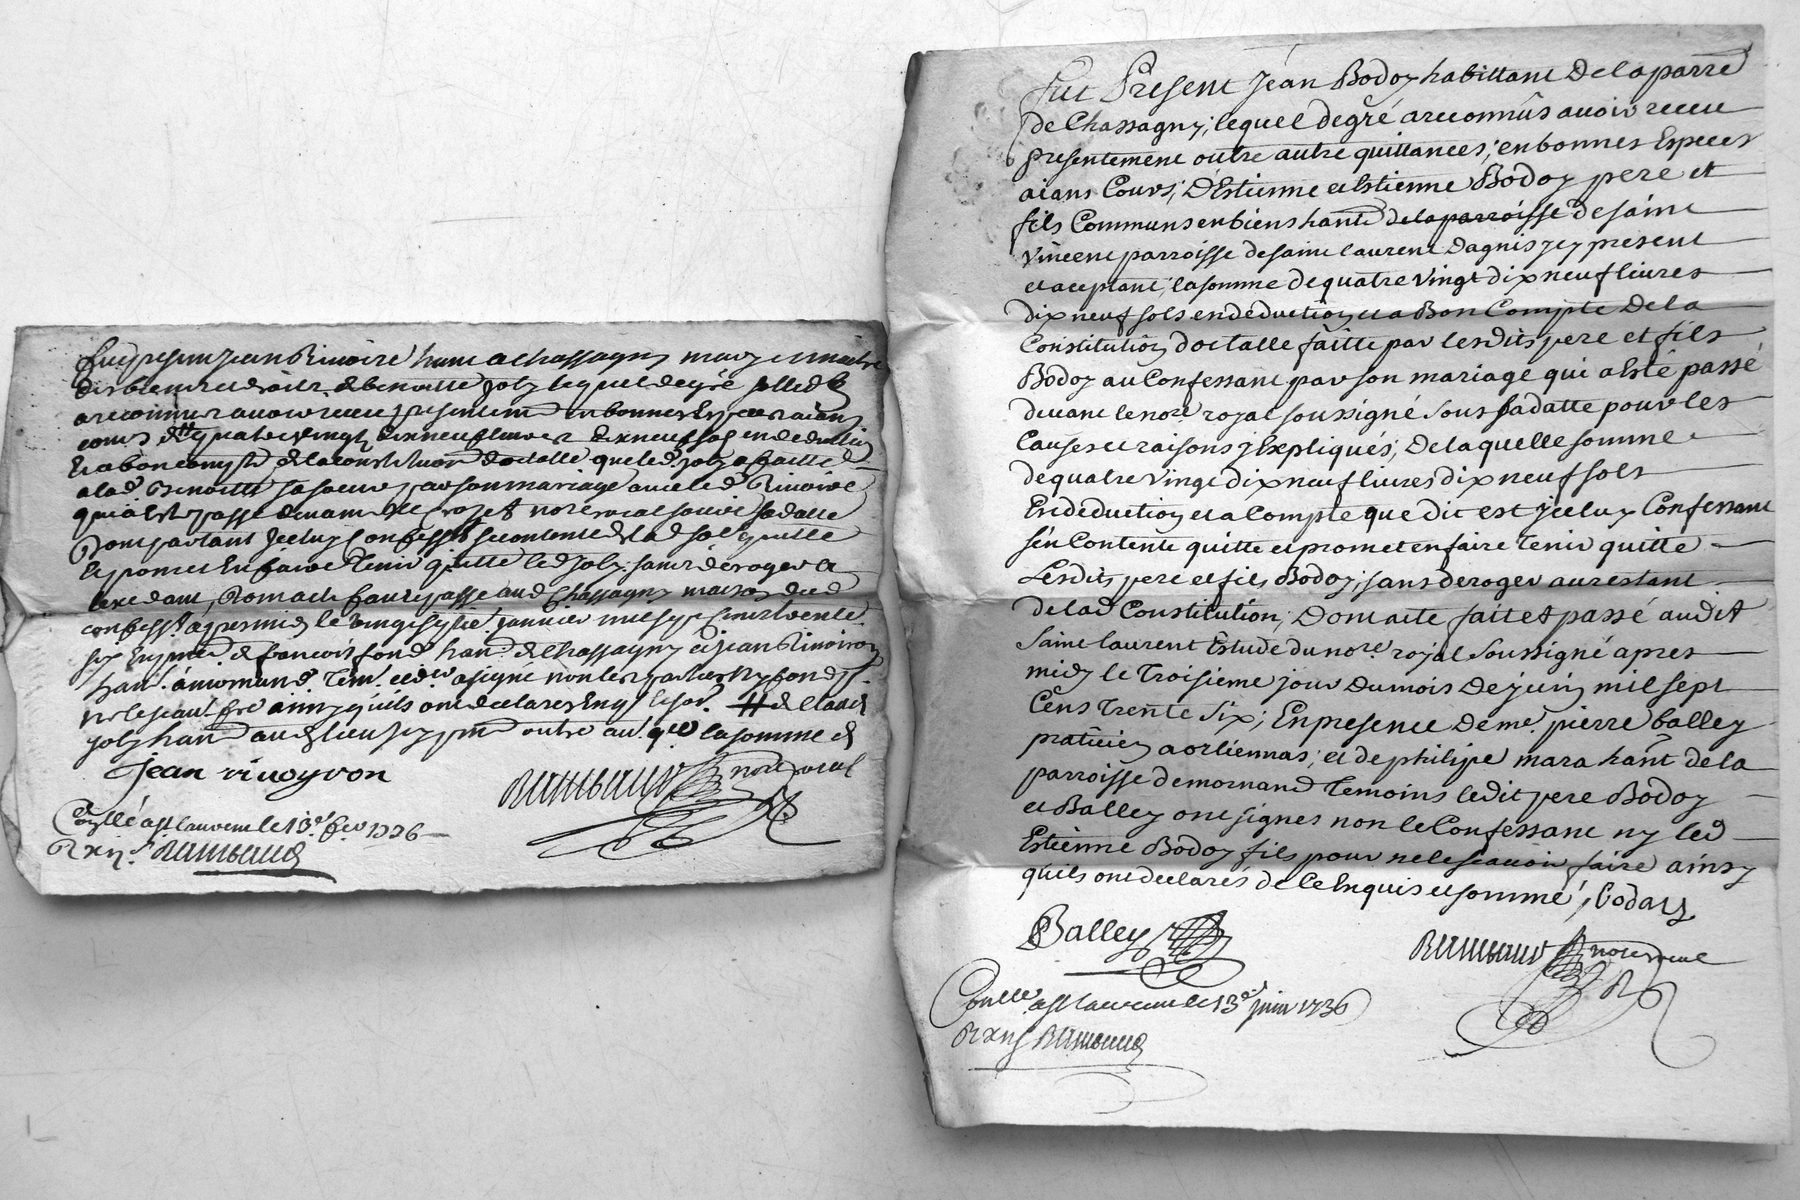 Fut present Jean Rimoire hant a Chassagny mary et maitre
des biens et droits de benoitte Joly lequel de gré
a reconnu avoir receu presentement en bonnes Especes aians
cours quatre vingt dix neuf livres dix neuf sols en deduction
Et a bon compte de la constitution dotalle que led. Joly a faitte
a lad. Benoitte sa soeur par son mariage avec led. Rimoire
qui a Esté passé devant nore roial sous sa datte
Dont partant Jceluy Confesst se contente quitte
Et promet En faire Tenir quitte led. Joly sans deroger a
lexedant, Dont acte fait et passé aud. Chassagny maison dud.
confesst. apres midy le vingt six janvier mil sept cent trente
six En pnce de francois fond hant. de Chassagny et jean Rimoiron
hant. a mornand Tem.
ne le scavoir fre ainsy qu'ils ont declaré Enquis et som. # de Claude
joly hant au lieu outre au. qce la somme de
Jean rimoyron
Rambaud nore roial
Conllé a st laurent le 13e fev 1736
R xij s. Rambaud
Fut Present Jean Bodoy habittant De la parre
de Chassagny; lequel de gré a reconnûs avoir receu
presentement outre autre quittances; en bonnes Especes
aians Cours; D'Estienne et Estienne Bodoy pere et
fils Communs en biens hants de la parroisse de saint
Vincent parroisse de saint laurent Dagnis jcy present
et aceptant; la somme de quatre vingt dix neuf livres
dix neuf sols en deduction et a Bon Compte De la
Constitution dotalle faitte par lesdits pere et fils
Bodoy au Confessant par son mariage qui a Esté passé
devant le nore royal soussigné sous sa datte pour les
Causes et raisons y Expliqués; De laquelle somme
de quatre vingt dix neuf livres dix neuf sols
En deduction et a Compte que dit est jceluy Confessant
s'en Contente quitte et promet en faire Tenir quitte
Lesdits pere et fils Bodoy; sans deroger au restant
de lad Constitution; Dont acte fait et passé audit
saint laurent Estude du nore royal soussigné apres
midy le Troisieme jour du mois De juin mil sept
Cens Trente Six; En presence de me. pierre balley
praticien a orliennas; et de philipe mara hant de la
parroisse de mornand Temoins ledit pere Bodoy
et Balley ont signés non le Confessant ny led
Estienne Bodoy fils pour ne le scavoir faire ainsy
quils ont declarés de Ce Enquis et sommé; bodoy
Balley
Rambaud nore roial
Conllé a st laurent le 13e juin 1736
R xij s Rambaud